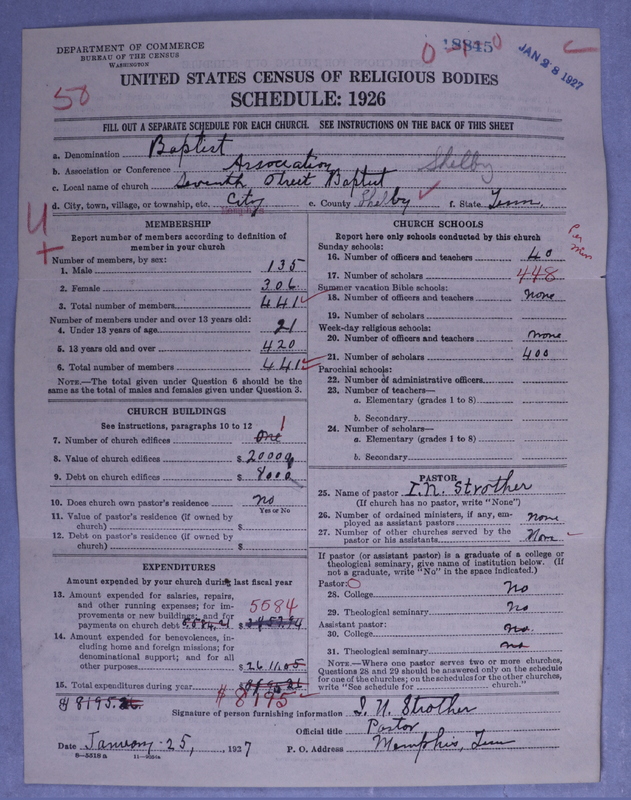 DEPARTMENT OF COMMERCE
BUREAU OF THE CENSUS
WASHINGTON
18815
JAN 28 1927
50
UNITED STATES CENSUS OF RELIGIOUS BODIES
SCHEDULE: 1926
FILL OUT A SEPARATE SCHEDULE FOR EACH CHURCH. SEE INSTRUCTIONS ON THE BACK OF THIS SHEET
a. Denomination Baptist
b. Association or Conference Association Shelby
c. Local name of church Seventh Street Baptist
d. City, town, village, or township, etc. City e. County Shelby f. State Tenn.
Memphis
MEMBERSHIP
Report number of members according to definition of
member in your church
Number of members, by sex:
1. Male 135
2. Female 306
3. Total number of members 441
Number of members under and over 13 years old:
4. Under 13 years of age 21
5. 13 years old and over 420
6. Total number of members 441
NOTE.—The total given under Question 6 should be the
same as the total of males and females given under Question 3.
CHURCH BUILDINGS
See instructions, paragraphs 10 to 12
7. Number of church edifices One 1
8. Value of church edifices $ 20000
9. Debt on church edifices $ 8000
10. Does church own pastor's residence No
Yes or No
11. Value of pastor's residence (if owned by
church) $
12. Debt on pastor's residence (if owned by
church) $
EXPENDITURES
Amount expended by your church during last fiscal year
13. Amount expended for salaries, repairs,
and other running expenses; for im-
provements or new buildings; and for
payments on church debt 5584.21 $
5584
14. Amount expended for benevolences, in-
cluding home and foreign missions; for
denominational support; and for all
other purposes $ 2611.05
15. Total expenditures during year $ 8195.26
$8195.26 $8195
CHURCH SCHOOLS
Report here only schools conducted by this church
Sunday schools:
16. Number of officers and teachers 40
17. Number of scholars 448
Per
Summer vacation Bible schools:
18. Number of officers and teachers None
19. Number of scholars
Week-day religious schools:
20. Number of officers and teachers None
21. Number of scholars 400
Parochial schools:
22. Number of administrative officers
23. Number of teachers—
a. Elementary (grades 1 to 8)
b. Secondary
24. Number of scholars—
a. Elementary (grades 1 to 8)
b. Secondary
PASTOR
25. Name of pastor I. N. Strother
(If church has no pastor, write "None")
26. Number of ordained ministers, if any, em-
ployed as assistant pastors None
27. Number of other churches served by the
pastor or his assistants None
If pastor (or assistant pastor) is a graduate of a college or
theological seminary, give name of institution below. (If
not a graduate, write "No" in the space indicated.)
Pastor:
28. College No
29. Theological seminary No
Assistant pastor:
30. College No
31. Theological seminary no
NOTE.—Where one pastor serves two or more churches,
Questions 28 and 29 should be answered only on the schedule
for one of the churches; on the schedules for the other churches,
write "See schedule for church."
Signature of person furnishing information I. N. Strother
Official title Pastor
Date January 25, 1927 P. O. Address Memphis, Tenn
8—5518 a